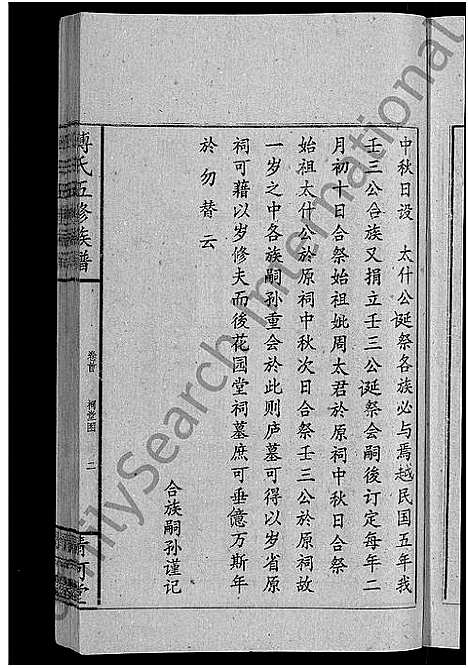 中秋日设　太什公诞祭各族必与焉越民国五年我
壬三公合族又捐立壬三公诞祭会嗣後订定每年二
月初十日合祭始祖妣周太君於原祠中秋日合祭
始祖太什公於原祠中秋次日合祭壬三公於原祠故
一岁之中各族嗣孙重会於此则庐墓可得以岁省原
祠可藉以岁修夫而後花园堂祠墓庶可垂億万斯年
於勿替云
合族嗣孙谨记
傅氏五修族谱
卷首　祠堂图　二
清河堂
FamilySearch International